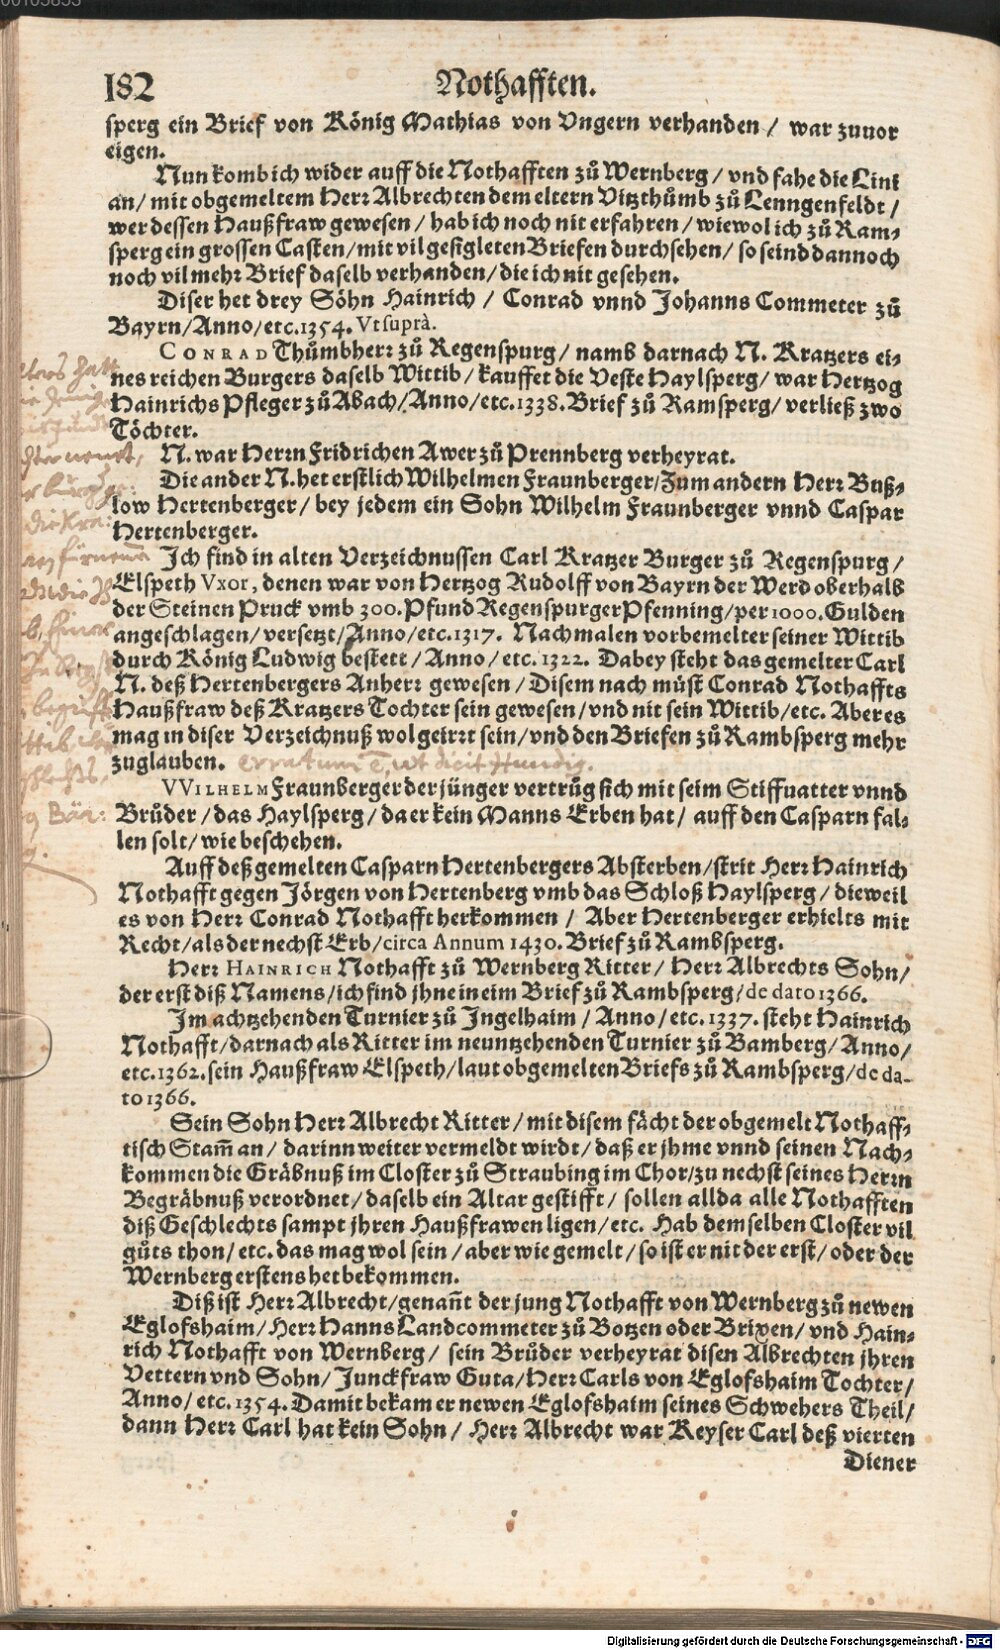 182
Nothafften.
sperg ein Brief von König Mathias von Vngern verhanden / war zuuor
eigen.
Nun komb ich wider auff die Nothafften zů Wernberg / vnd fahe die Lini
an / mit obgemeltem Herr Albrechten dem eltern Vitzthůmb zů Lenngenfeldt /
wer dessen Haußfraw gewesen / hab ich noch nit erfahren / wiewol ich zů Ram-
sperg ein grossen Casten / mit vil gesigleten Briefen durchsehen / so seind dannoch
noch vil mehr Brief daselb verhanden / die ich nit gesehen.
Diser het drey Söhn Hainrich / Conrad vnnd Johanns Commeter zů
Bayrn / Anno / etc. 1354. Vt suprà.
CONRAD Thůmbherr zů Regenspurg / namb darnach N. Kratzers ei-
nes reichen Burgers daselb Wittib / kauffet die Veste Haylsperg / war Hertzog
Hainrichs Pfleger zů Abach / Anno / etc. 1338. Brief zů Ramsperg / verließ zwo
Töchter.
N. war Herrn Fridrichen Awer zů Prennberg verheyrat.
Die ander N. het erstlich Wilhelmen Fraunberger / Zum andern Herr Buß-
low Hertenberger / bey jedem ein Sohn Wilhelm Fraunberger vnnd Caspar
Hertenberger.
Ich find in alten Verzeichnussen Carl Kratzer Burger zů Regenspurg /
Elspeth Vxor, denen war von Hertzog Rudolff von Bayrn der Werd oberhalb
der Steinen Pruck vmb 300. Pfund Regenspurger Pfenning / per 1000. Gulden
angeschlagen / versetzt / Anno / etc. 1317. Nachmalen vorbemelter seiner Wittib
durch König Ludwig bestett / Anno / etc. 1322. Dabey steht das gemelter Carl
N. deß Hertenbergers Anherr gewesen / Disem nach můst Conrad Nothaffts
Haußfraw deß Kratzers Tochter sein gewesen / vnd nit sein Wittib / etc. Aber es
mag in diser Verzeichnuß wol geirrt sein / vnd den Briefen zů Rambsperg mehr
zuglauben. erratum ē, ut dicit Hundig.
VVILHELM Fraunberger der jünger vertrůg sich mit seim Stiffuatter vnnd
Brůder / das Haylsperg / da er kein Manns Erben hat / auff den Casparn fal-
len solt / wie beschehen.
Auff deß gemelten Casparn Hertenbergers Absterben / strit Herr Hainrich
Nothafft gegen Jörgen von Hertenberg vmb das Schloß Haylsperg / dieweil
es von Herr Conrad Nothafft herkommen / Aber Hertenberger erhielts mit
Recht / als der nechst Erb / circa Annum 1430. Brief zů Rambsperg.
Herr HAINRICH Nothafft zů Wernberg Ritter / Herr Albrechts Sohn /
der erst diß Namens / ich find jhne in eim Brief zů Rambsperg / de dato 1366.
Im achtzehenden Turnier zů Ingelhaim / Anno / etc. 1337. steht Hainrich
Nothafft / darnach als Ritter im neuntzehenden Turnier zů Bamberg / Anno /
etc. 1362. sein Haußfraw Elspeth / laut obgemelten Briefs zů Rambsperg / de da-
to 1366.
Sein Sohn Herr Albrecht Ritter / mit disem fächt der obgemelt Nothaff-
tisch Stam̄ an / darinn weiter vermeldt wirdt / daß er jhme vnnd seinen Nach-
kommen die Gräbnuß im Closter zů Straubing im Chor / zu nechst seines Herrn
Begräbnuß verordnet / daselb ein Altar gestifft / sollen allda alle Nothafften
diß Geschlechts sampt jhren Haußfrawen ligen / etc. Hab dem selben Closter vil
gůts thon / etc. das mag wol sein / aber wie gemelt / so ist er nit der erst / oder der
Wernberg erstens het bekommen.
Diß ist Herr Albrecht / genan̄t der jung Nothafft von Wernberg zů newen
Eglofshaim / Herr Hanns Landcommeter zů Botzen oder Brixen / vnd Hain-
rich Nothafft von Wernberg / sein Brůder verheyrat disen Albrechten jhren
Vettern vnd Sohn / Junckfraw Guta / Herr Carls von Eglofshaim Tochter /
Anno / etc. 1354. Damit bekam er newen Eglofshaim seines Schwehers Theil /
dann Herr Carl hat kein Sohn / Herr Albrecht war Keyser Carl deß vierten
Diener
Digitalisierung gefördert durch die Deutsche Forschungsgemeinschaft - DFG